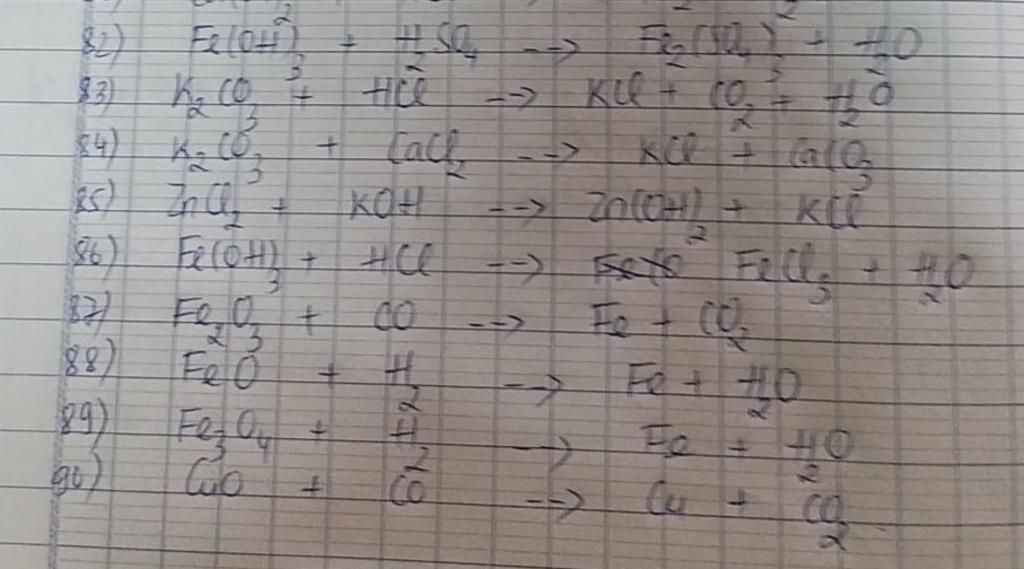 82) Fe(OH)3 + H2SO4 --> Fe2(SO4)3 + H2O
83) K2CO3 + HCl --> KCl + CO2 + H2O
84) K2CO3 + CaCl2 --> KCl + CaCO3
85) ZnCl2 + KOH --> Zn(OH)2 + KCl
86) Fe(OH)3 + HCl --> FeCl3 + H2O
87) Fe2O3 + CO --> Fe + CO2
88) FeO + H2 --> Fe + H2O
89) Fe3O4 + H2 --> Fe + H2O
90) CuO + CO --> Cu + CO2